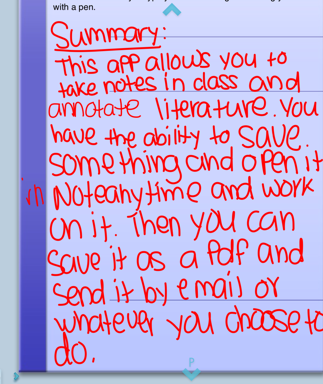 with a pen.
Summary:
This app allows you to
take notes in class and
annotate literature. You
have the ability to save
something and open it
in Noteanytime and work
on it. Then you can
save it as a Pdf and
send it by email or
whatever you choose to
do.
P